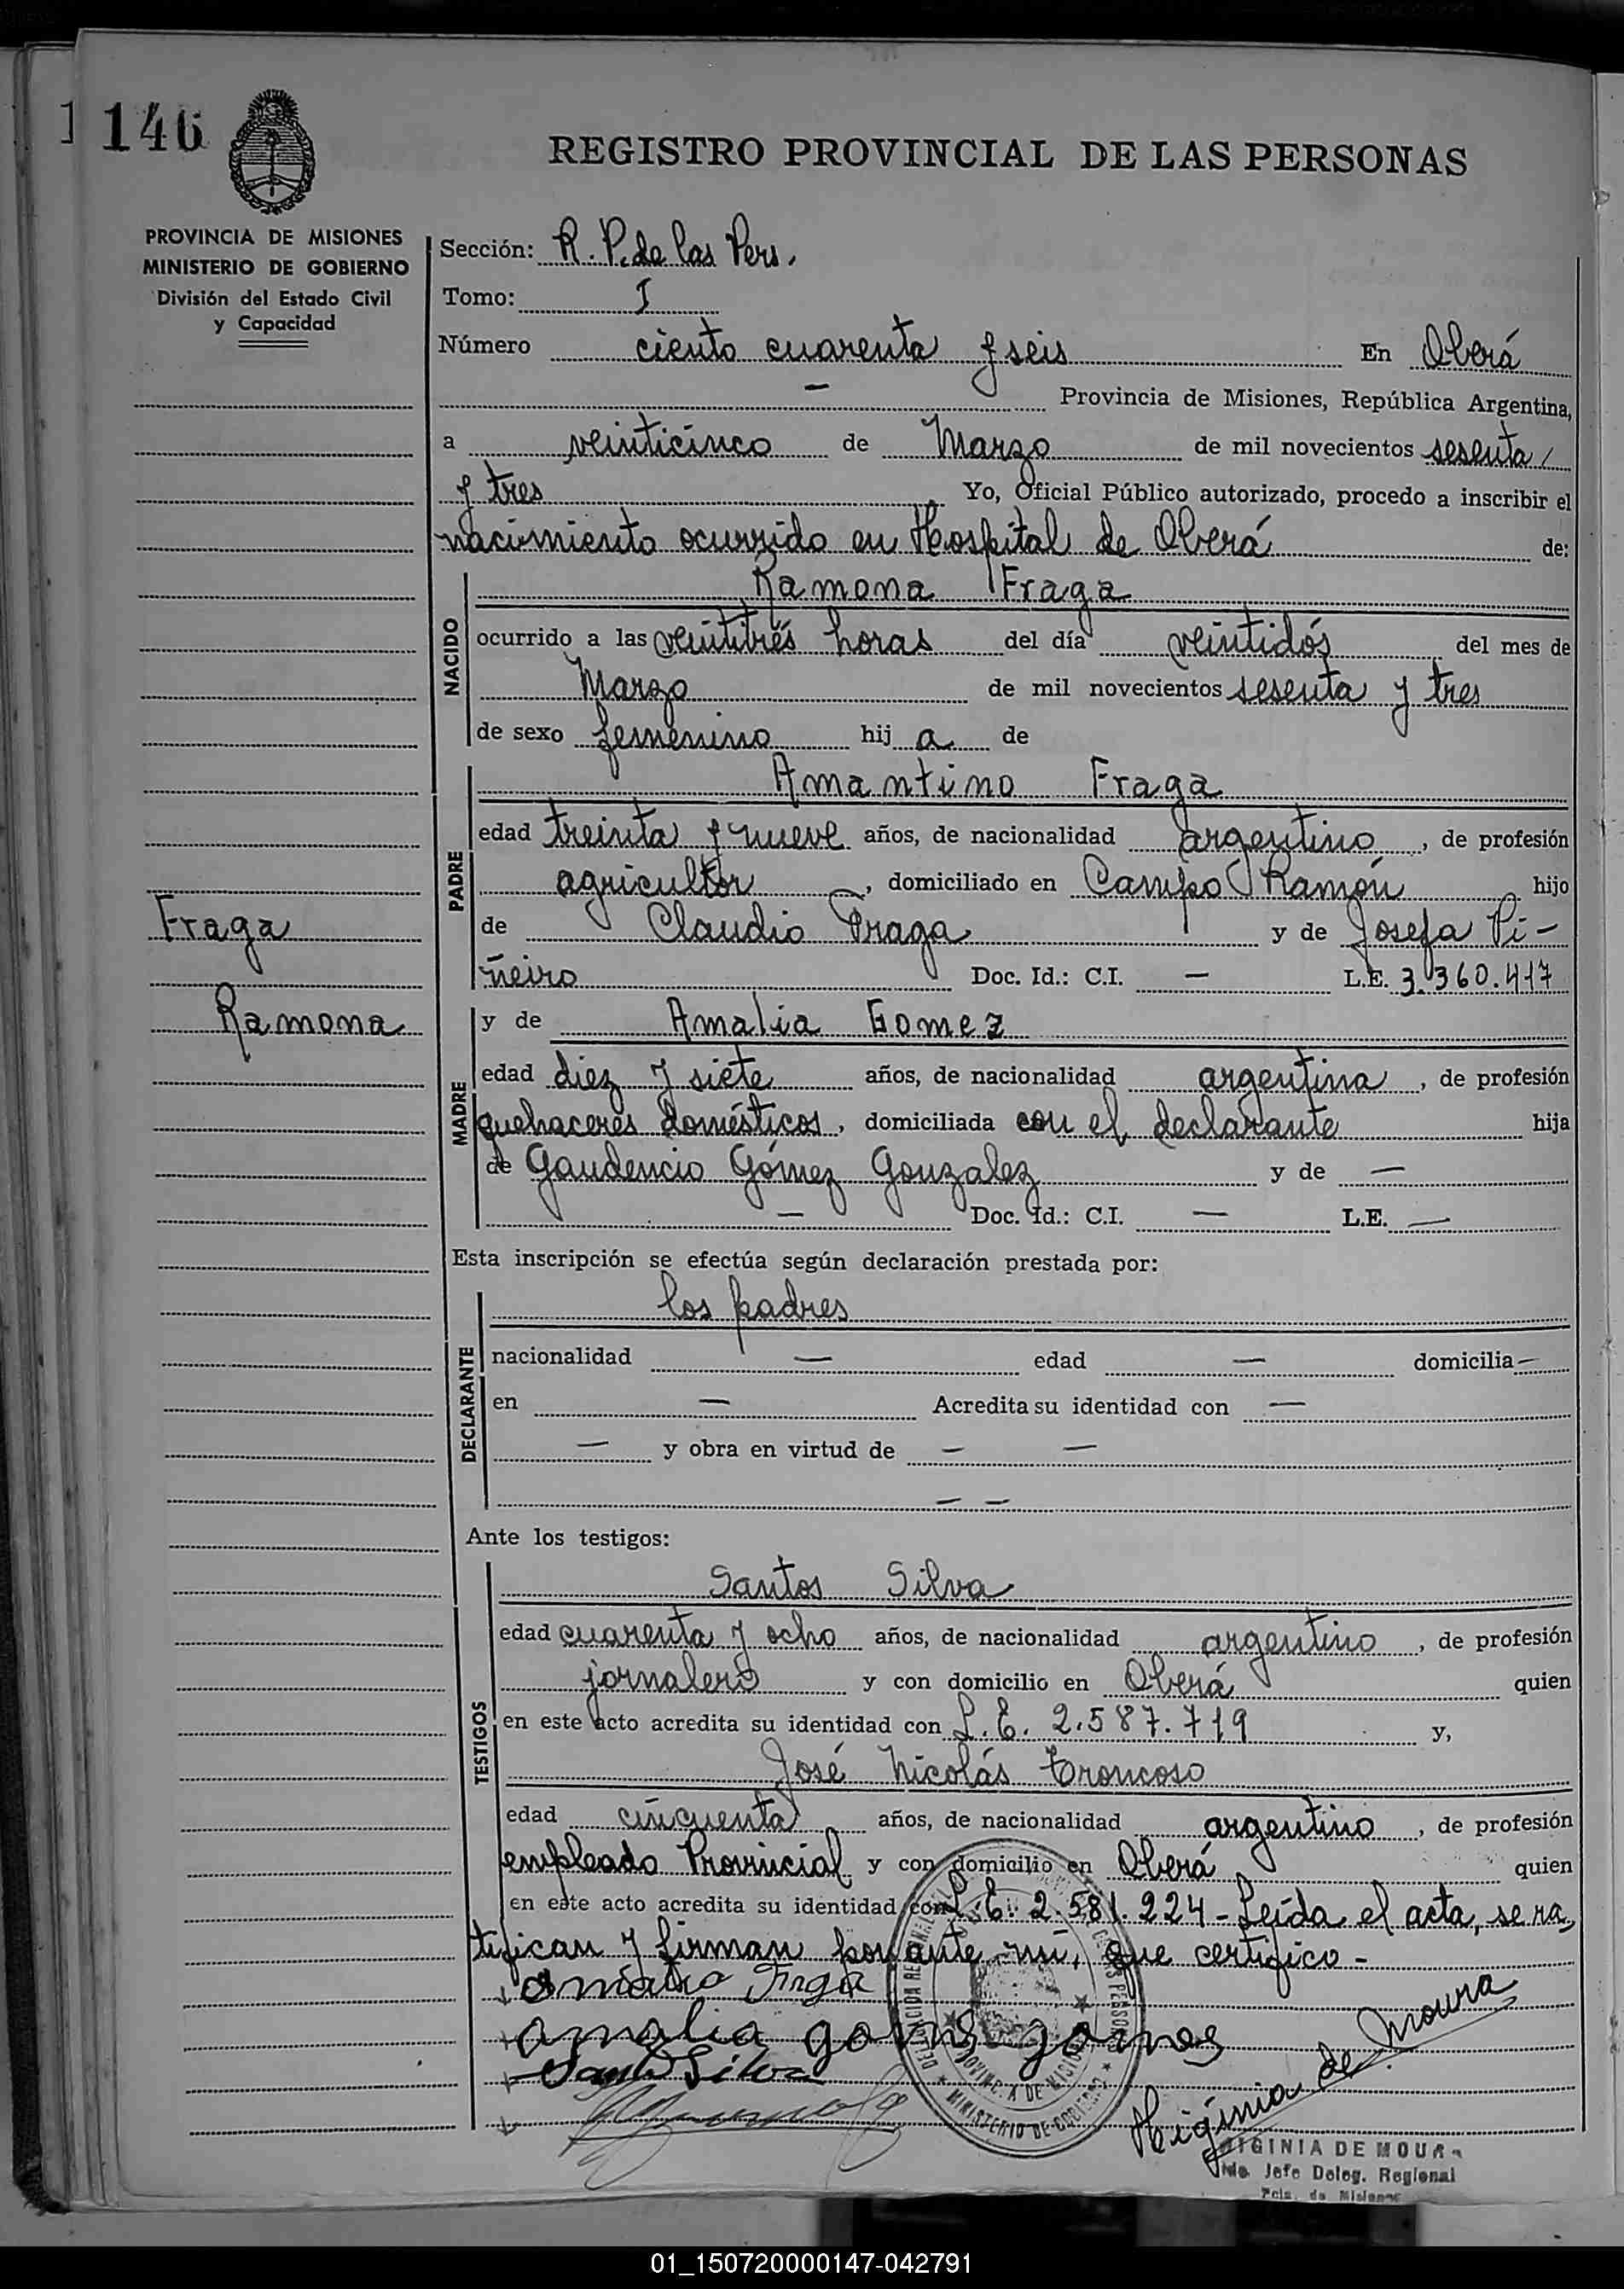 146
REGISTRO PROVINCIAL DE LAS PERSONAS
PROVINCIA DE MISIONES
MINISTERIO DE GOBIERNO
División del Estado Civil
y Capacidad
Sección: R. P. de las Pers.
Tomo: I
Número ciento cuarenta y seis En Oberá
— Provincia de Misiones, República Argentina,
a veinticinco de Marzo de mil novecientos sesenta
y tres Yo, Oficial Público autorizado, procedo a inscribir el
nacimiento ocurrido en Hospital de Oberá de:
NACIDO
Ramona Fraga
ocurrido a las veintitrés horas del día veintidós del mes de
Marzo de mil novecientos sesenta y tres
de sexo femenino hij a de
PADRE
Amantino Fraga
edad treinta y nueve años, de nacionalidad argentino, de profesión
agricultor, domiciliado en Campo Ramón hijo
de Claudio Fraga y de Josefa Pi-
ñeiro Doc. Id.: C.I. — L.E. 3.360.417
Fraga
Ramona
MADRE
y de Amalia Gomez
edad diez y siete años, de nacionalidad argentina, de profesión
quehaceres domésticos, domiciliada con el declarante hija
de Gaudencio Gómez Gonzalez y de —
— Doc. Id.: C.I. — L.E. —
Esta inscripción se efectúa según declaración prestada por:
DECLARANTE
los padres
nacionalidad — edad — domicilia —
en — Acredita su identidad con —
— y obra en virtud de — —
— —
Ante los testigos:
TESTIGOS
Santos Silva
edad cuarenta y ocho años, de nacionalidad argentino, de profesión
jornalero y con domicilio en Oberá quien
en este acto acredita su identidad con L.E. 2.587.719 y,
José Nicolás Troncoso
edad cincuenta años, de nacionalidad argentino, de profesión
empleado Provincial y con domicilio en Oberá quien
en este acto acredita su identidad con L.E. 2.581.224 - Leída el acta, se ra
tifican y firman por ante mí, que certifico -
amalia gomes gomes
Santos Silva
Higinia de Moura
MINISTERIO DE GOBIERNO
HIGINIA DE MOURA
Jefe Deleg. Regional
Pcia. de Misiones
01_150720000147-042791